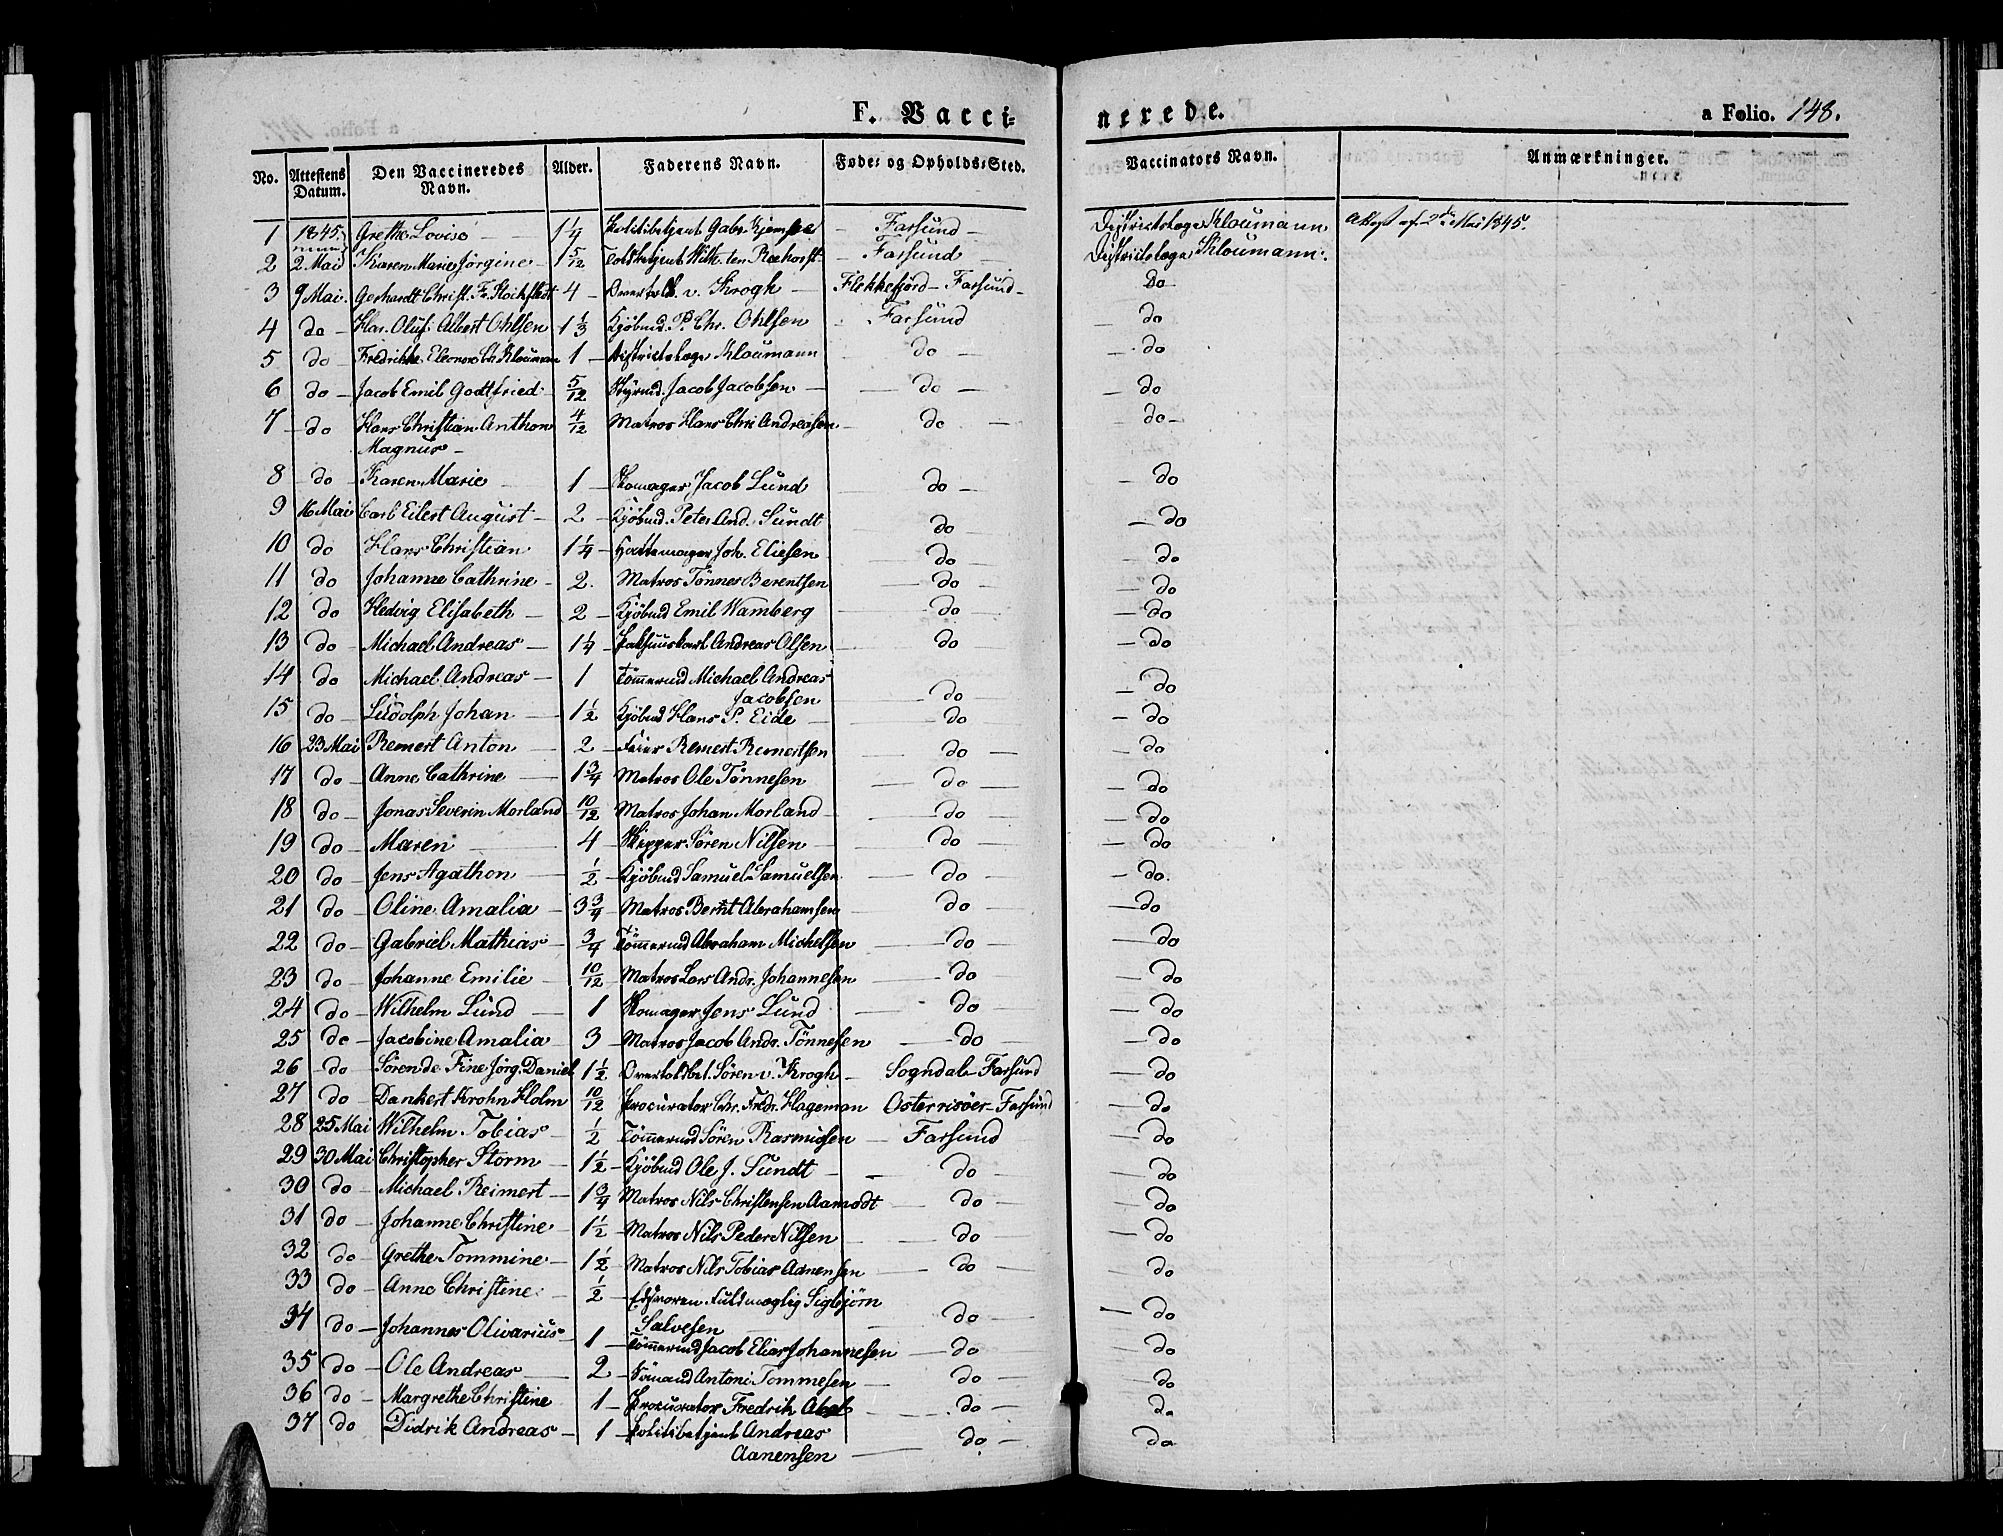 F. Vacci=
nerede.
a Folio. 148.
No. Attestens Datum. Den Vaccineredes Navn. Alder. Faderens Navn. Føde= og Opholds=Sted. Vaccinators Navn. Anmærkninger.
1 1845. Grethe Lovise 1 1/4 Politibetjent Gabr. Farsund Districtslæge Kloumann Attest af 2den Mai 1845.
2 2 Mai Karen Marie Jørgine 1 5/12 Toldbetjent Wilh. ten Farsund Districtslæge Kloumann.
3 9 Mai. Gerhardt Christ. Fr. 4 v. Krogh Flekkefjord - Farsund Do
4 do Har. Oluf: Albert Ohlsen 1 1/3 Kjøbmd. P. Chr. Ohlsen Farsund do
5 do Fredrikke Eleonore Ch. Kloumann 1 Districtslæge Kloumann do do
6 do Jacob Emil Godtfried 5/12 Styrmd. Jacob Jacobsen do do
7 do Hans Christian Anthon 4/12 Matros Hans Chr. Andreasen do do
Magnus
8 do Karen Marie 1 Skomager Jacob Lund do do
9 16 Mai Carl Eilert August 2 Kjøbmd. Peter And. Sundt do do
10 do Hans Christian 1 1/4 Hattemager Joh. Eliesen do do
11 do Johanne Cathrine 2. Matros Tönnes Berentsen do do
12 do Hedvig Elisabeth 2 Kjöbmd Emil Wamberg do do
13 do Michael Andreas 1 1/4 Pakhuuskarl Andreas Olsen do do
14 do Michael Andreas 1 Tömmermd Michael Andreas
Jacobsen do do
15 do Ludolph Johan 1 1/2 Kjöbmd Hans P. Eide do do
16 23 Mai Remert Anton 2 Feier Remert Remertsen do do
17 do Anne Cathrine 1 3/4 Matros Ole Tönnesen do do
18 do Jonas Severin Morland 10/12 Matros Johan Morland do do
19 do Maren 4 Skipper Sören Nilsen do do
20 do Jens Agathon 1/2 Kjöbmd Samuel Samuelsen do do.
21 do Oline Amalia 3 3/4 Matros Bernt Abrahamsen do do
22 do Gabriel Mathias 3/4 Tömmermd Abraham Michelsen do do
23 do Johanne Emilie 10/12 Matros Lars Andr. Johannesen do do
24 do Wilhelm Lund 1 Skomager Jens Lund do do
25 do Jacobine Amalia 3 Matros Jacob Andr. Tönnesen do do
26 do Sören de Fine Jörg. Daniel 1 1/2 Overtoldbet. Sören v. Krogh Sogndal - Farsund do
27 do Dankert Krohn Holm 10/12 Procurator Chr. Fredr. Hageman Österrisöer - Farsund do
28 25 Mai Wilhelm Tobias 1/2 Tömmermd Sören Rasmusen Farsund do
29 30 Mai Christopher Storm 1 1/2 Kjöbmd Ole J. Sundt do do
30 do Michael Reimert 1 3/4 Matros Nils Christensen Aamodt do do
31 do Johanne Christine 1 1/2 Matros Nils Peder Nilsen do do
32 do Grethe Tommine 1 1/2 Matros Nils Tobias Aanensen do do
33 do Anne Christine 1/2 Edsvoren Fuldmægtig Sigbjörn
Salvesen do do
34 do Johannes Olivarius 1 Tömmermd Jacob Elias Johannesen do do
35 do Ole Andreas 2 Sömand Antoni Tommesen do do
36 do Margrethe Christine 1 Procurator Fredrik Abel do do
37 do Didrik Andreas 1 Politibetjent Andreas
Aanensen do do